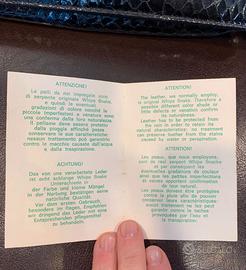 ATTENZIONE!
Le pelli da noi impiegate sono
di serpente originale Whips Snake
e quindi le eventuali
gradazioni di colore nonché le
piccole imperfezioni o venature sono
una conferma della loro naturalezza.
Il pellame deve essere protetto
dalla pioggia affinché possa
conservare le sue caratteristiche:
nessun trattamento può garantirlo
contro le macchie causate dall'acqua
e dalla traspirazione.
ACHTUNG!
Das von uns verarbeitete Leder
ist echt schlange Whips Snake
Unterschiede in
der Farbe und kleine Mängel
in der Narbung bestätigen seine
natürliche Qualität.
Vor dem ersten Gebrauch,
besonders im Regen, Empfehlen
wir dringend das Leder mit eine
Entsprechenden pflegemittel
zu behandeln.
ATTENTION!
The leather we normally employ,
is original Whips Snake. Therefore a
possible different color shade or
little defects or venation confirm
its naturalness.
Leather has to be protected from
the rain in order to retain its
natural characteristics: no treatment
can preserve leather from the stains
caused by water or perspiration.
ATTENTION!
Les peaux, que nous employons,
sont de réel serpent Whips Snake
et par conséquent les
éventuelles gradations de couleur
ainsi que les petites imperfections
et veines confirment leur
naturalité.
Les peaux doivent être protégées
contre la pluie afin de pouvoir
conserver leurs caractéristiques:
aucun traitement ne les peut
garantir contre les taches
provoquées par l'eau et
la transpiration.